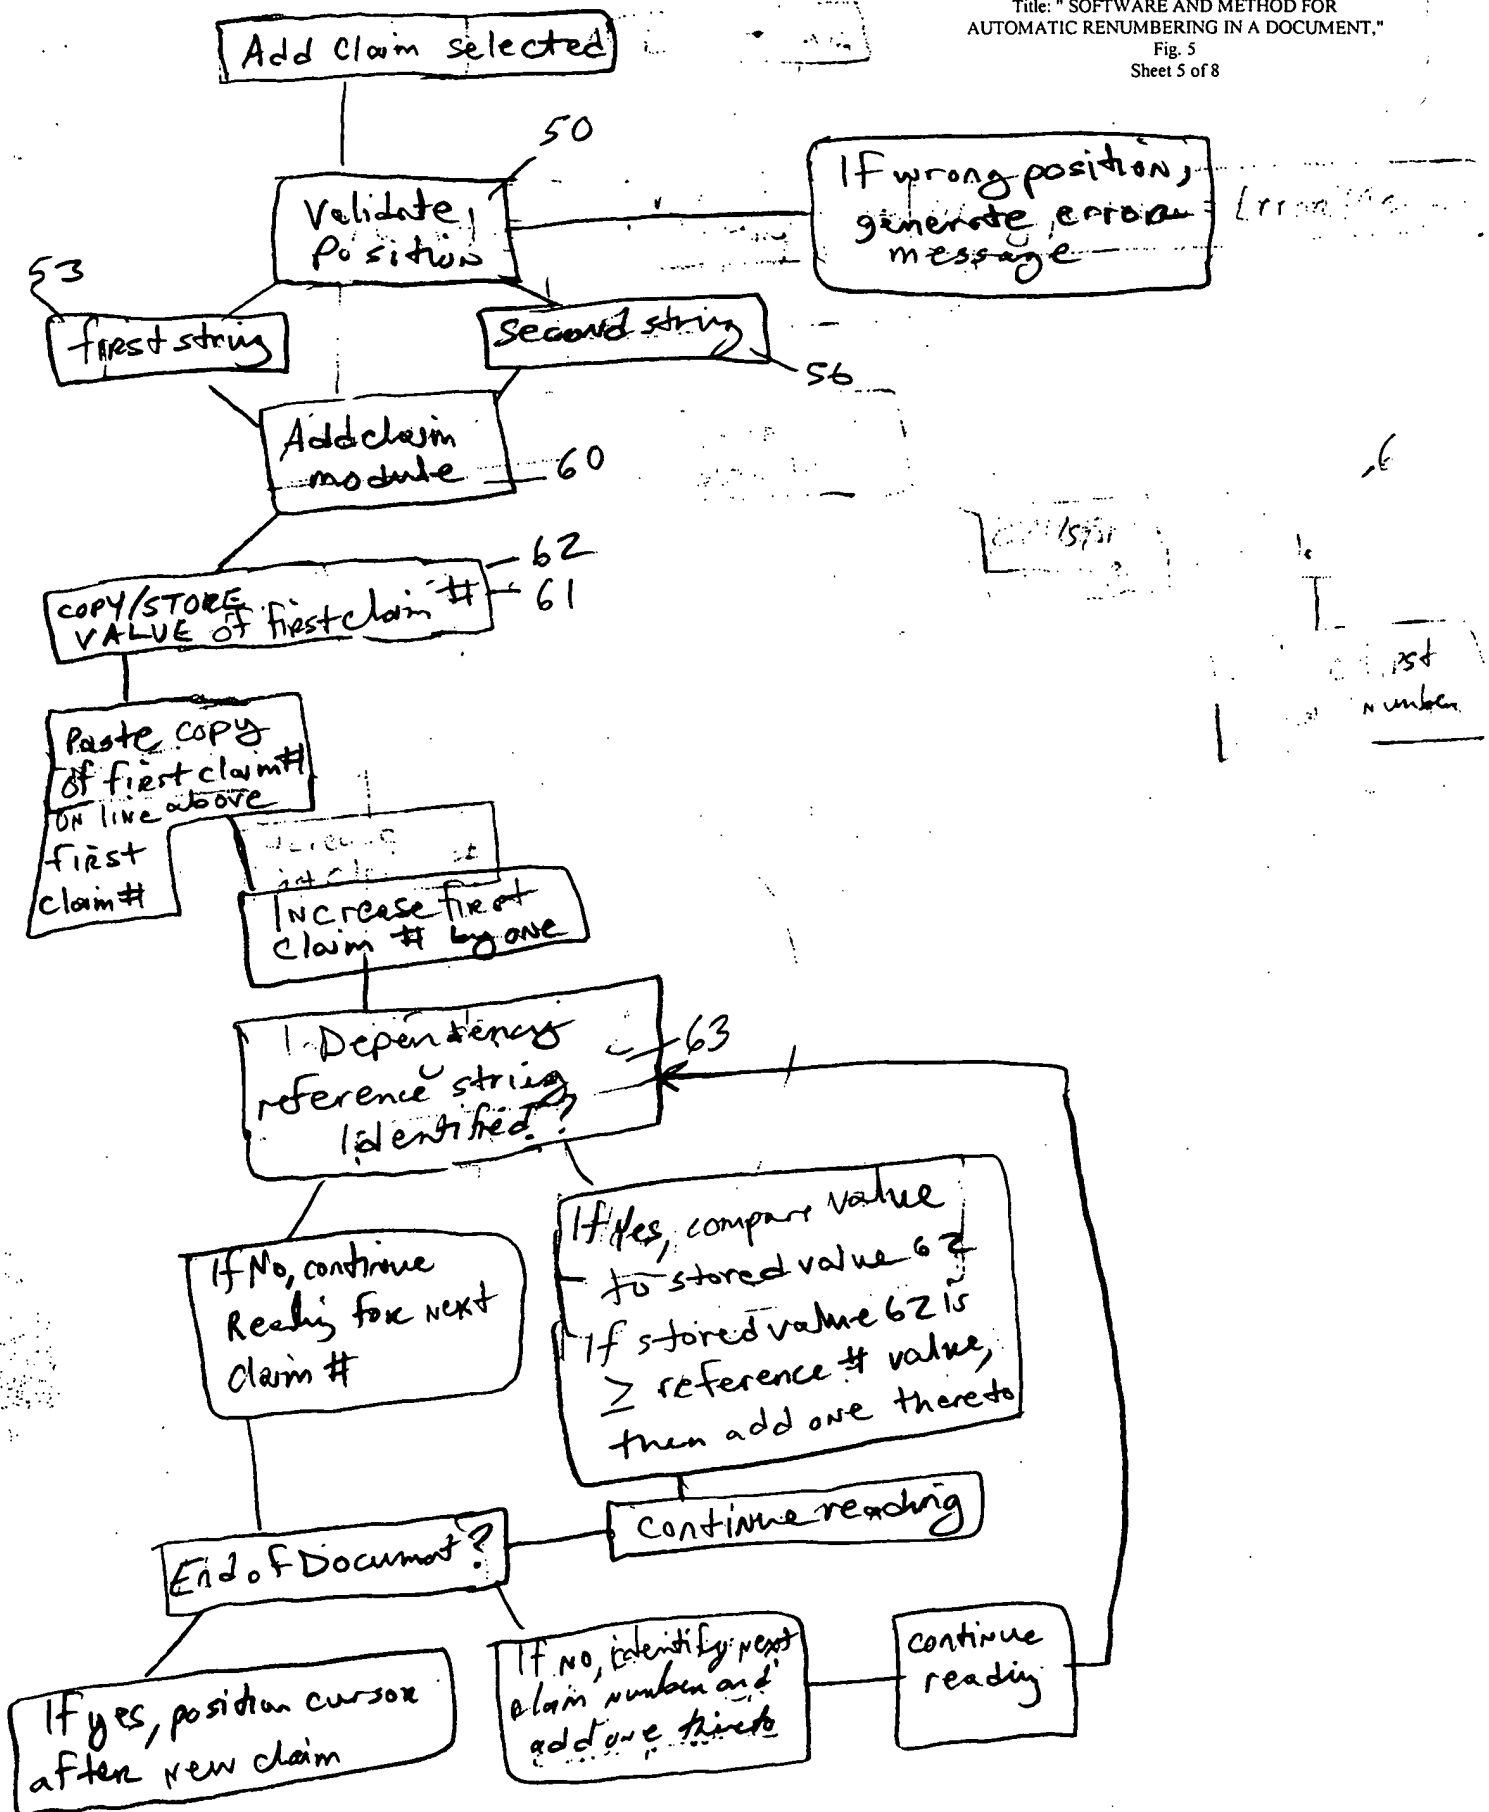 Title: " SOFTWARE AND METHOD FOR
AUTOMATIC RENUMBERING IN A DOCUMENT,"
Fig. 5
Sheet 5 of 8
Add Claim selected
50
Validate
Position
If wrong position,
generate error
message
53
first string
second string
56
Add claim
module
60
62
COPY/STORE
VALUE of first claim #
61
Paste copy
of first claim #
ON line above
first
claim #
Increase first
claim # by one
Dependency
reference string
Identified?
63
If No, continue
Reading for next
claim #
If Yes, compare value
to stored value 62
If stored value 62 is
≥ reference # value,
then add one thereto
continue reading
End of Document?
If yes, position cursor
after new claim
If no, identify next
claim number and
add one thereto
continue
reading
number